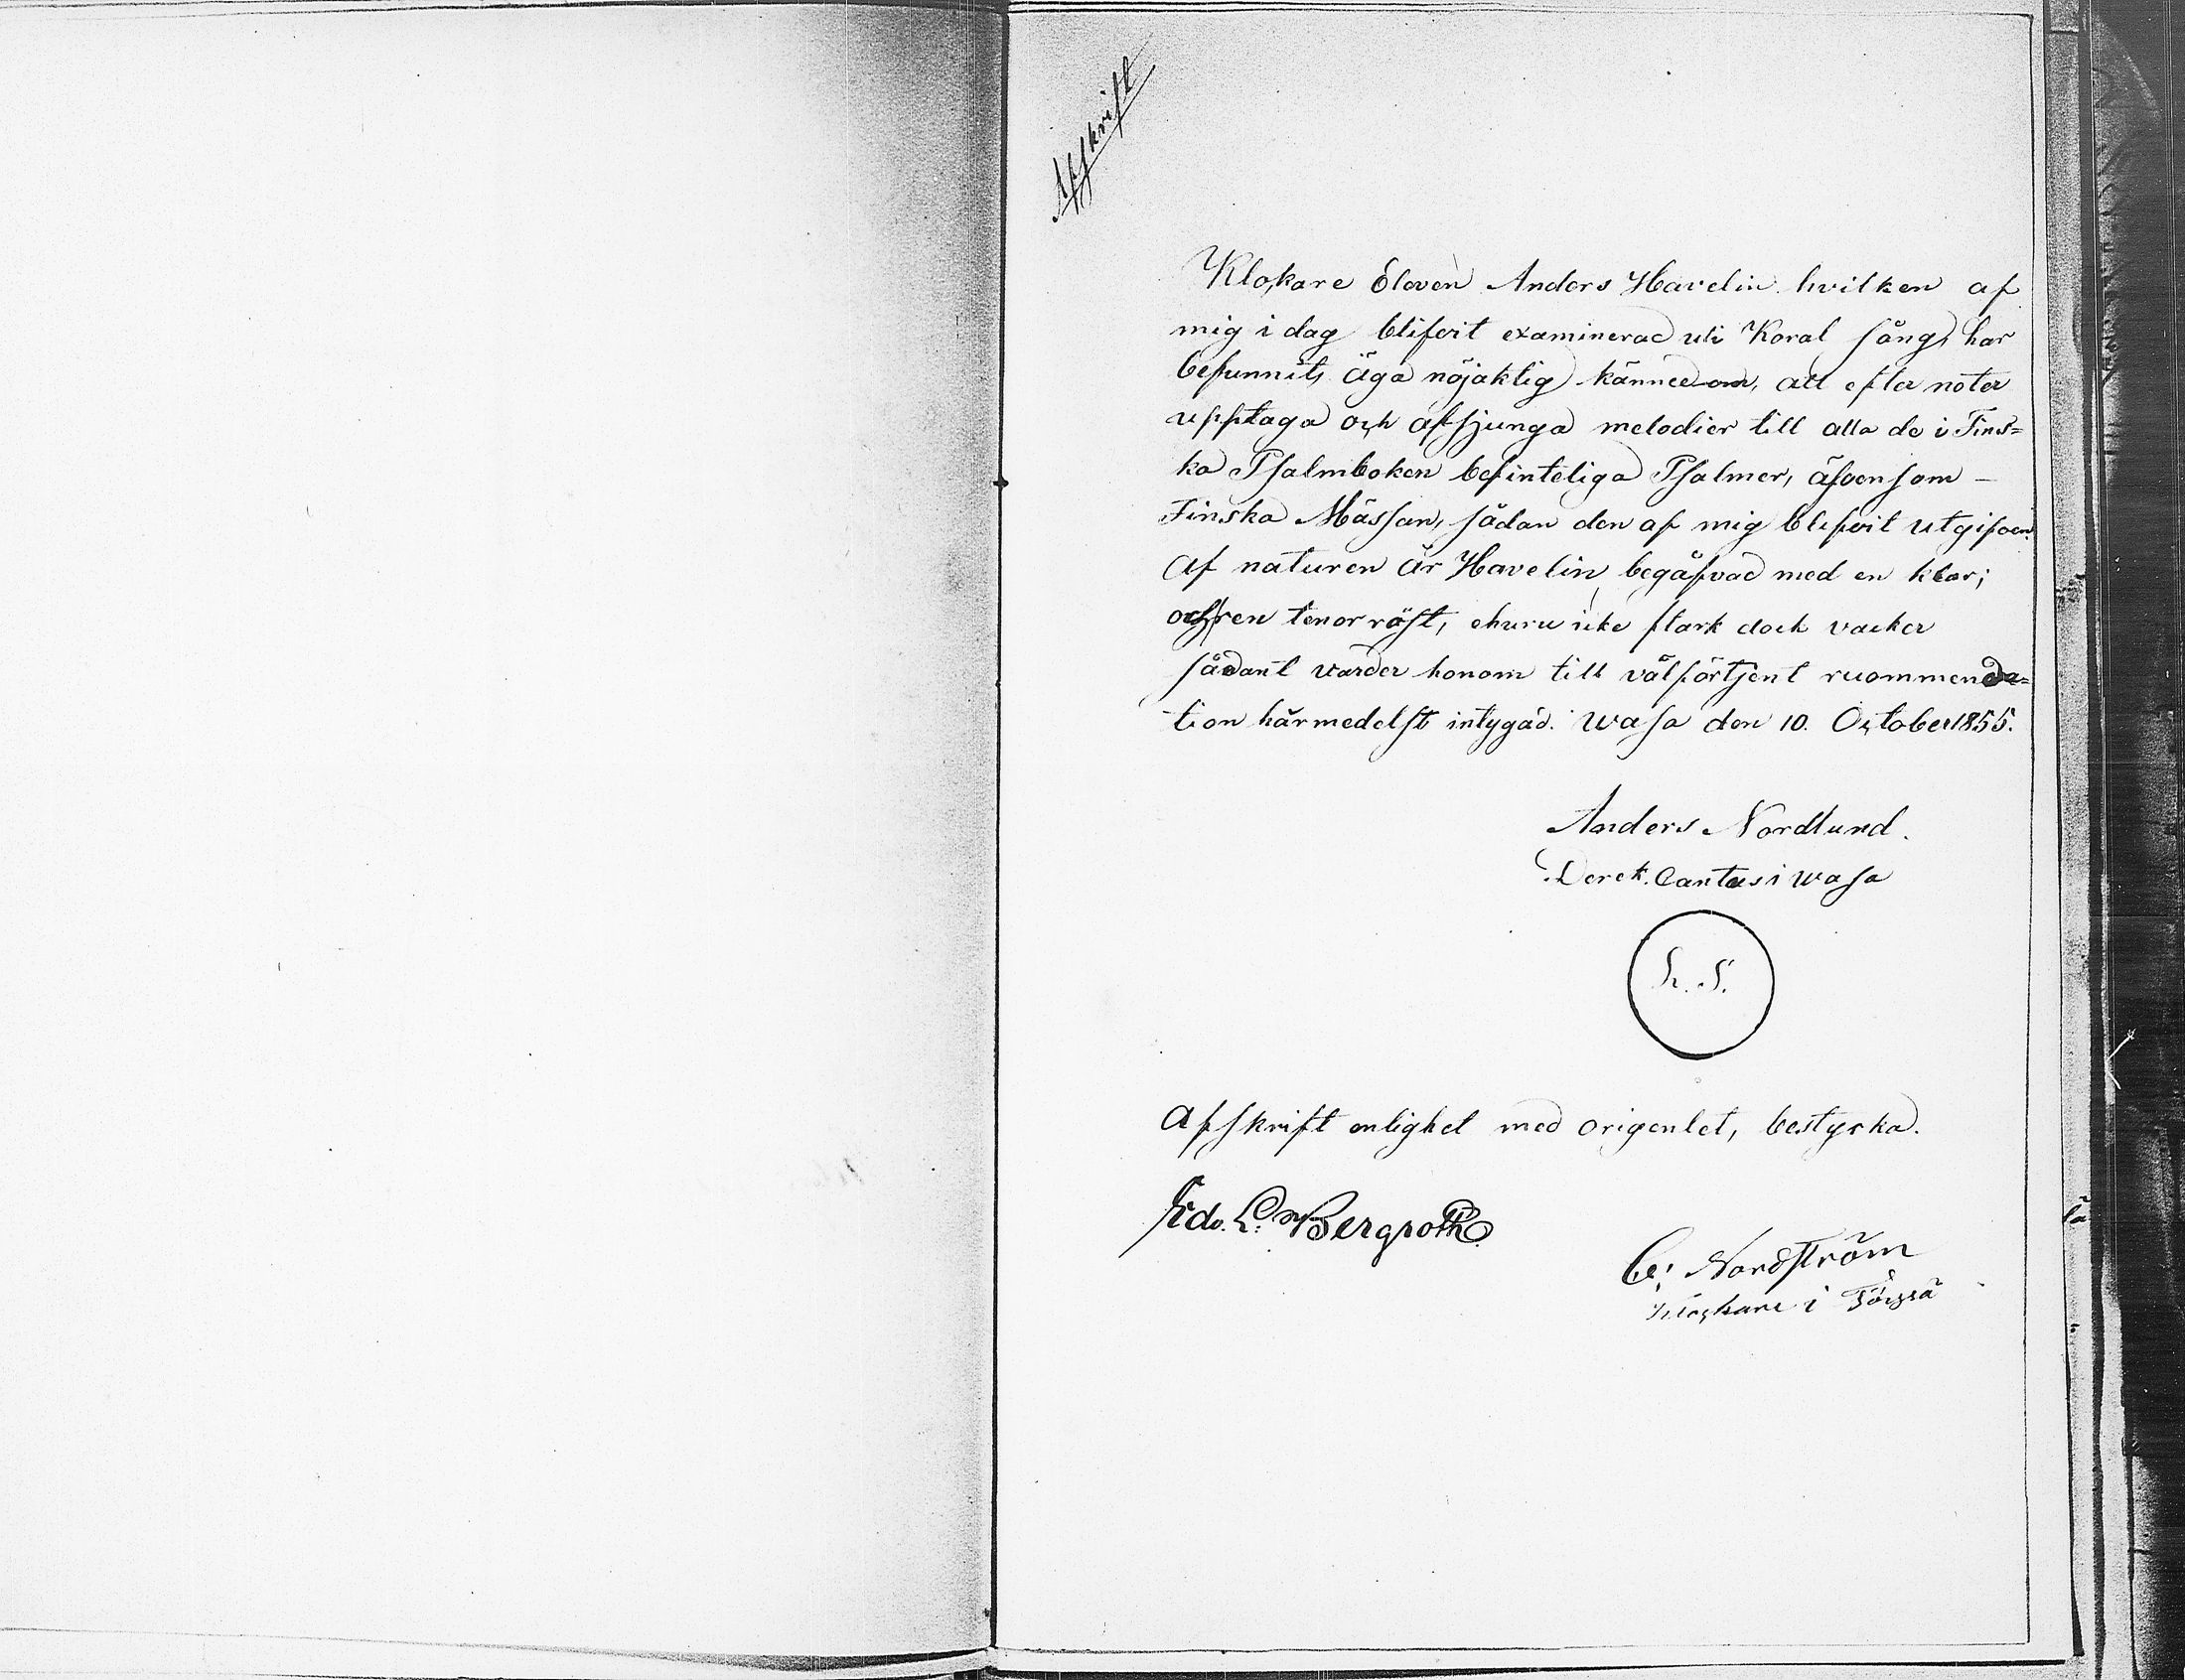 Afskrift
Klockare Eleven Anders Havelin hvilken af
mig i dag blifvit examinerad uti Koral sång, har
befunnits äga nöjaktig kännedom, att efter noter
upptaga och afsjunga melodier till alla de i Fins=
ka Psalmboken befinteliga Psalmer, äfvensom –
Finska Mässan, sådan den af mig blifvit utgifven.
Af naturen är Havelin begåfvad med en klar;
och ren tenor röst, ehuru icke stark dock vacker
sådant varder honom till välförtjent recommenda=
tion härmedelst intygad. Wasa den 10. October 1855.
Anders Nordlund.
Derek. Cantus i Wasa
L. S.
Afskrift enlighet med origenlet, bestyrka.
Edv. L. Bergroth
C: Nordström
Klockare i